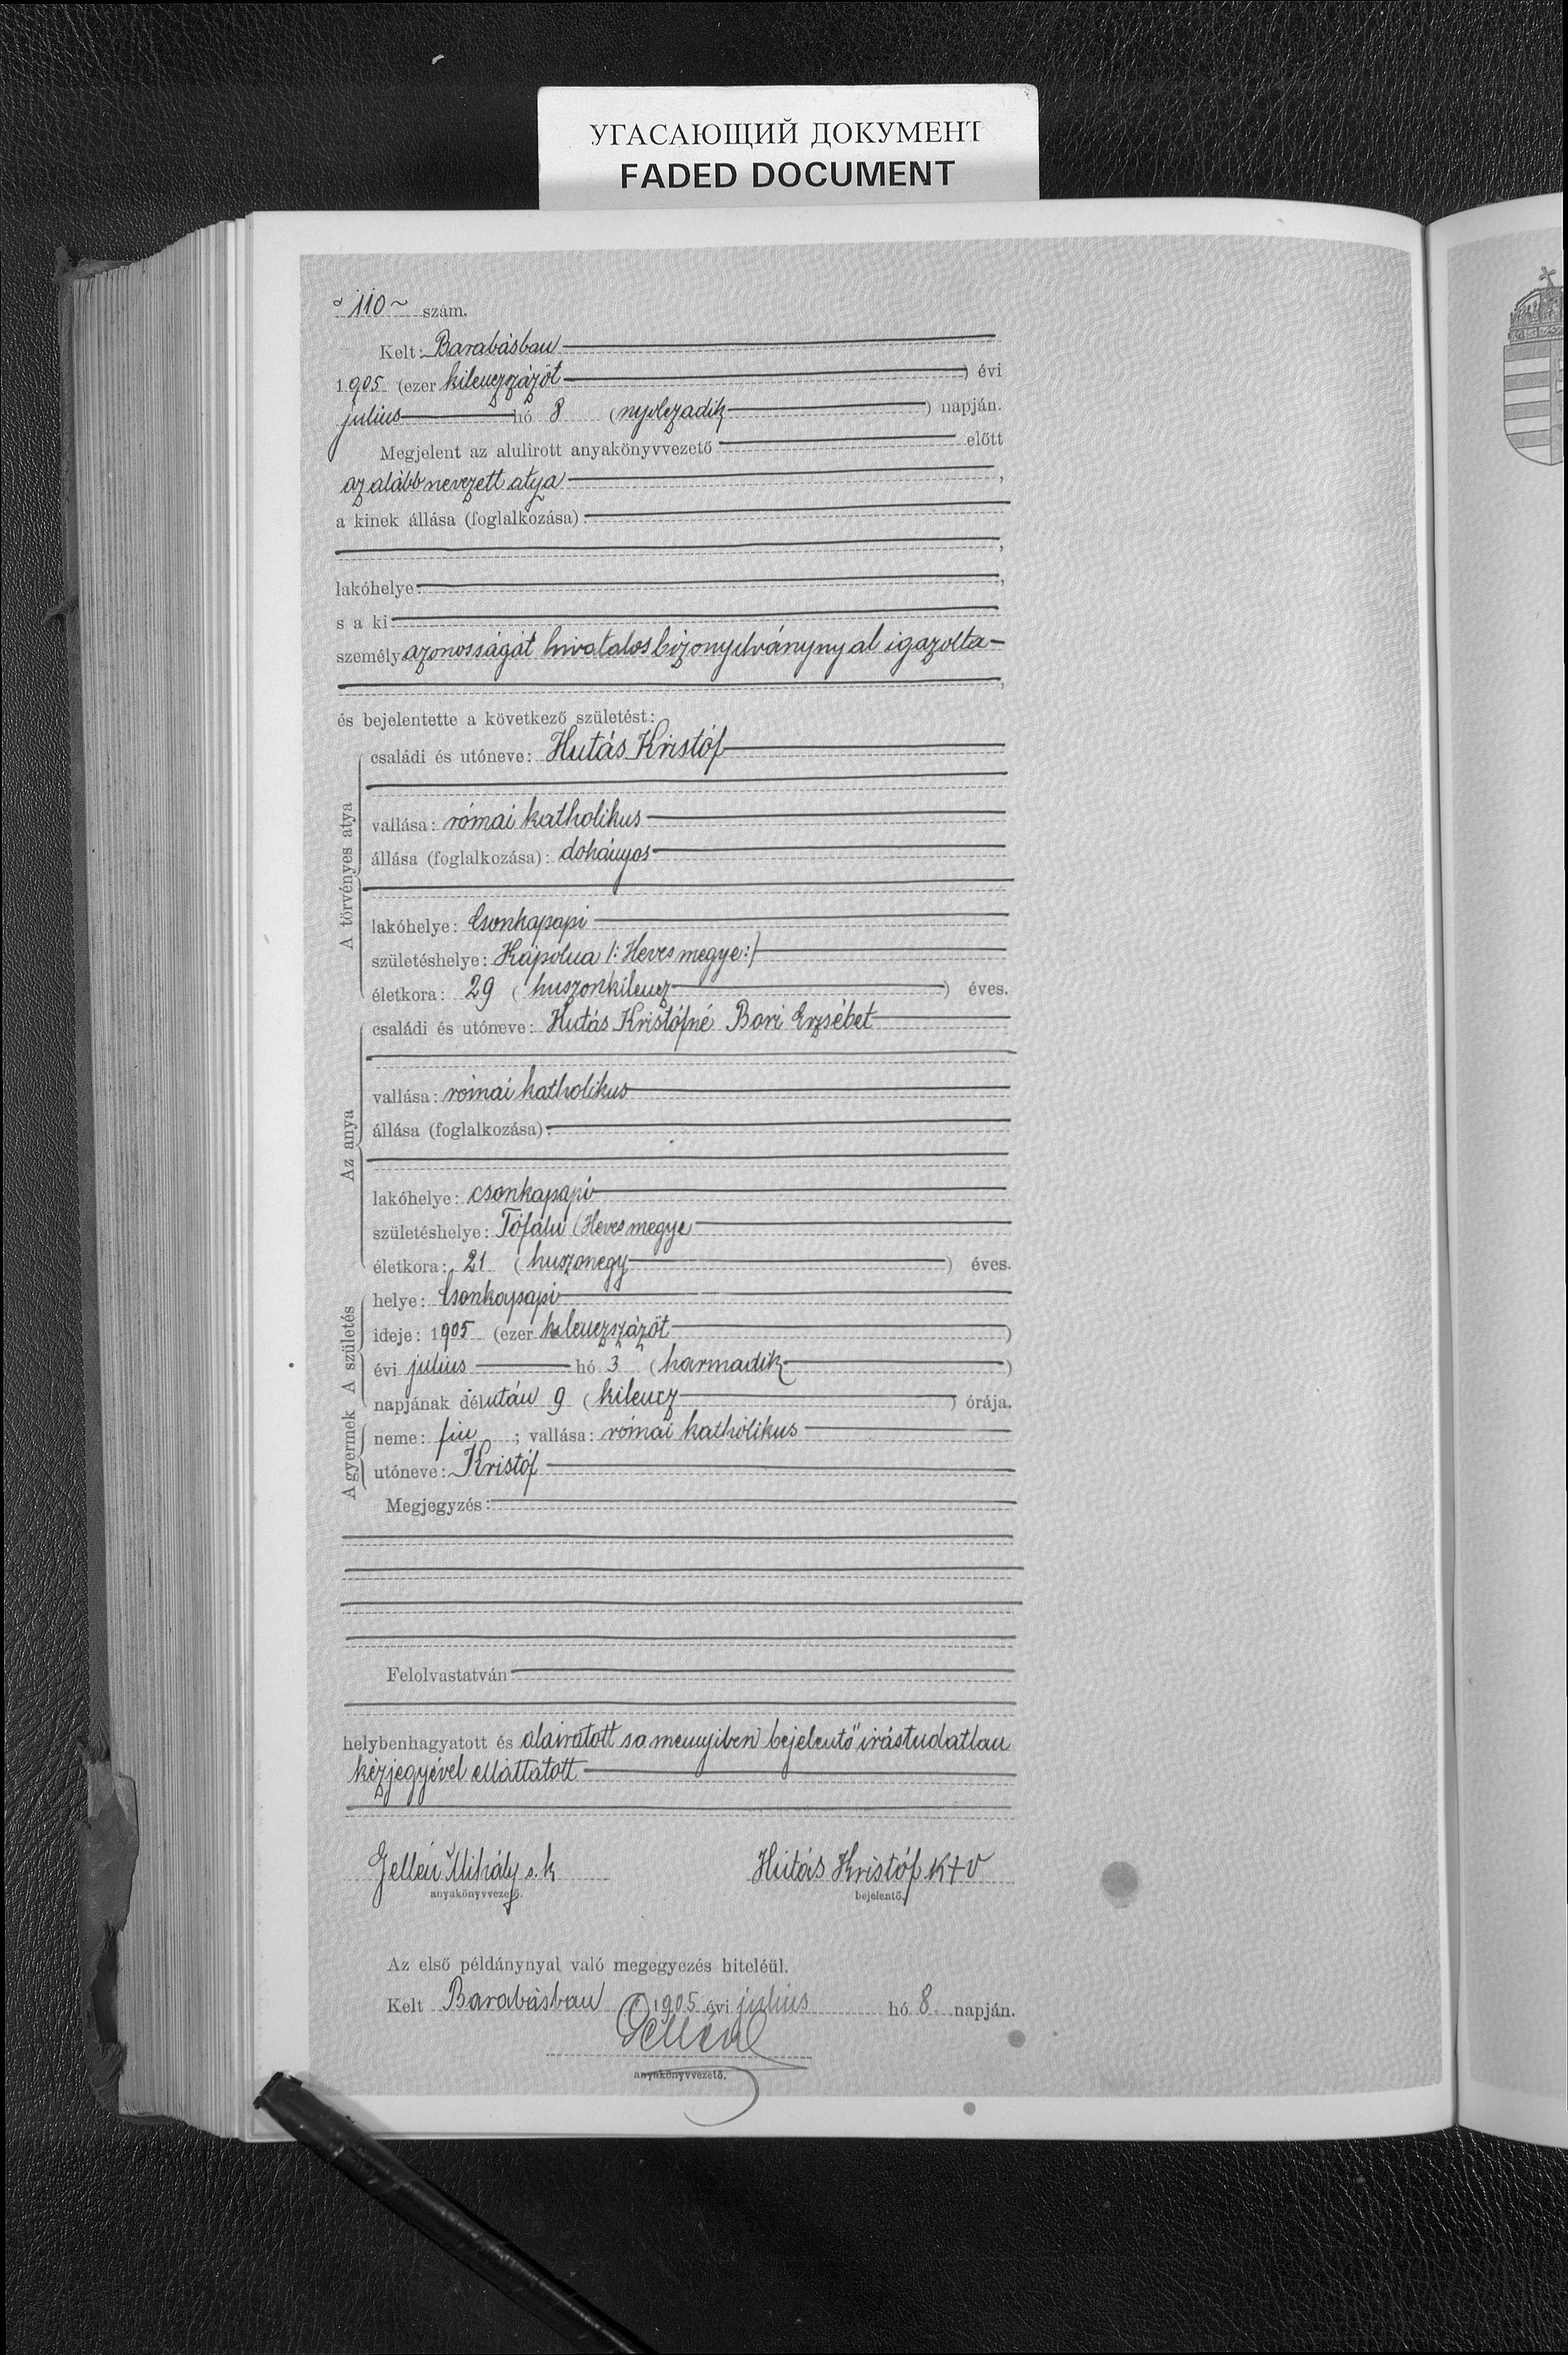 УГАСАЮЩИЙ ДОКУМЕНТ
FADED DOCUMENT
110 szám.
Kelt: Barabásban
1905 (ezer kilenczszázöt) évi
julius hó 8 (nyolczadik) napján.
Megjelent az alulirott anyakönyvvezető előtt
az alább nevezett atya,
a kinek állása (foglalkozása):
lakóhelye:
s a ki
személyazonosságát hivatalos bizonyitványnyal igazolta
és bejelentette a következő születést:
A törvényes atya
családi és utóneve: Hutás Kristóf
vallása: római katholikus
állása (foglalkozása): dohányos
lakóhelye: Csonkapapi
születéshelye: Kápolna /: Heves megye:/
életkora: 29 (huszonkilencz) éves.
Az anya
családi és utóneve: Hutás Kristófné Bori Erzsébet
vallása: római katholikus
állása (foglalkozása):
lakóhelye: csonkapapi
születéshelye: Tófalu (Heves megye
életkora: 21 (huszonegy) éves.
A születés
helye: Csonkapapi
ideje: 1905 (ezer kilenczszázöt)
évi julius hó 3 (harmadik)
napjának délután 9 (kilencz) órája.
A gyermek
neme: fiu; vallása: római katholikus
utóneve: Kristóf
Megjegyzés:
Felolvastatván
helybenhagyatott és aláiratott sa mennyiben bejelentő irástudatlan
kézjegyével elláttatott
Gellén Mihály s. k. Hutás Kristóf K+V
anyakönyvvezető. bejelentő.
Az első példánynyal való megegyezés hiteléül.
Kelt Barabásban 1905 évi julius hó 8 napján.
Gellén
anyakönyvvezető.